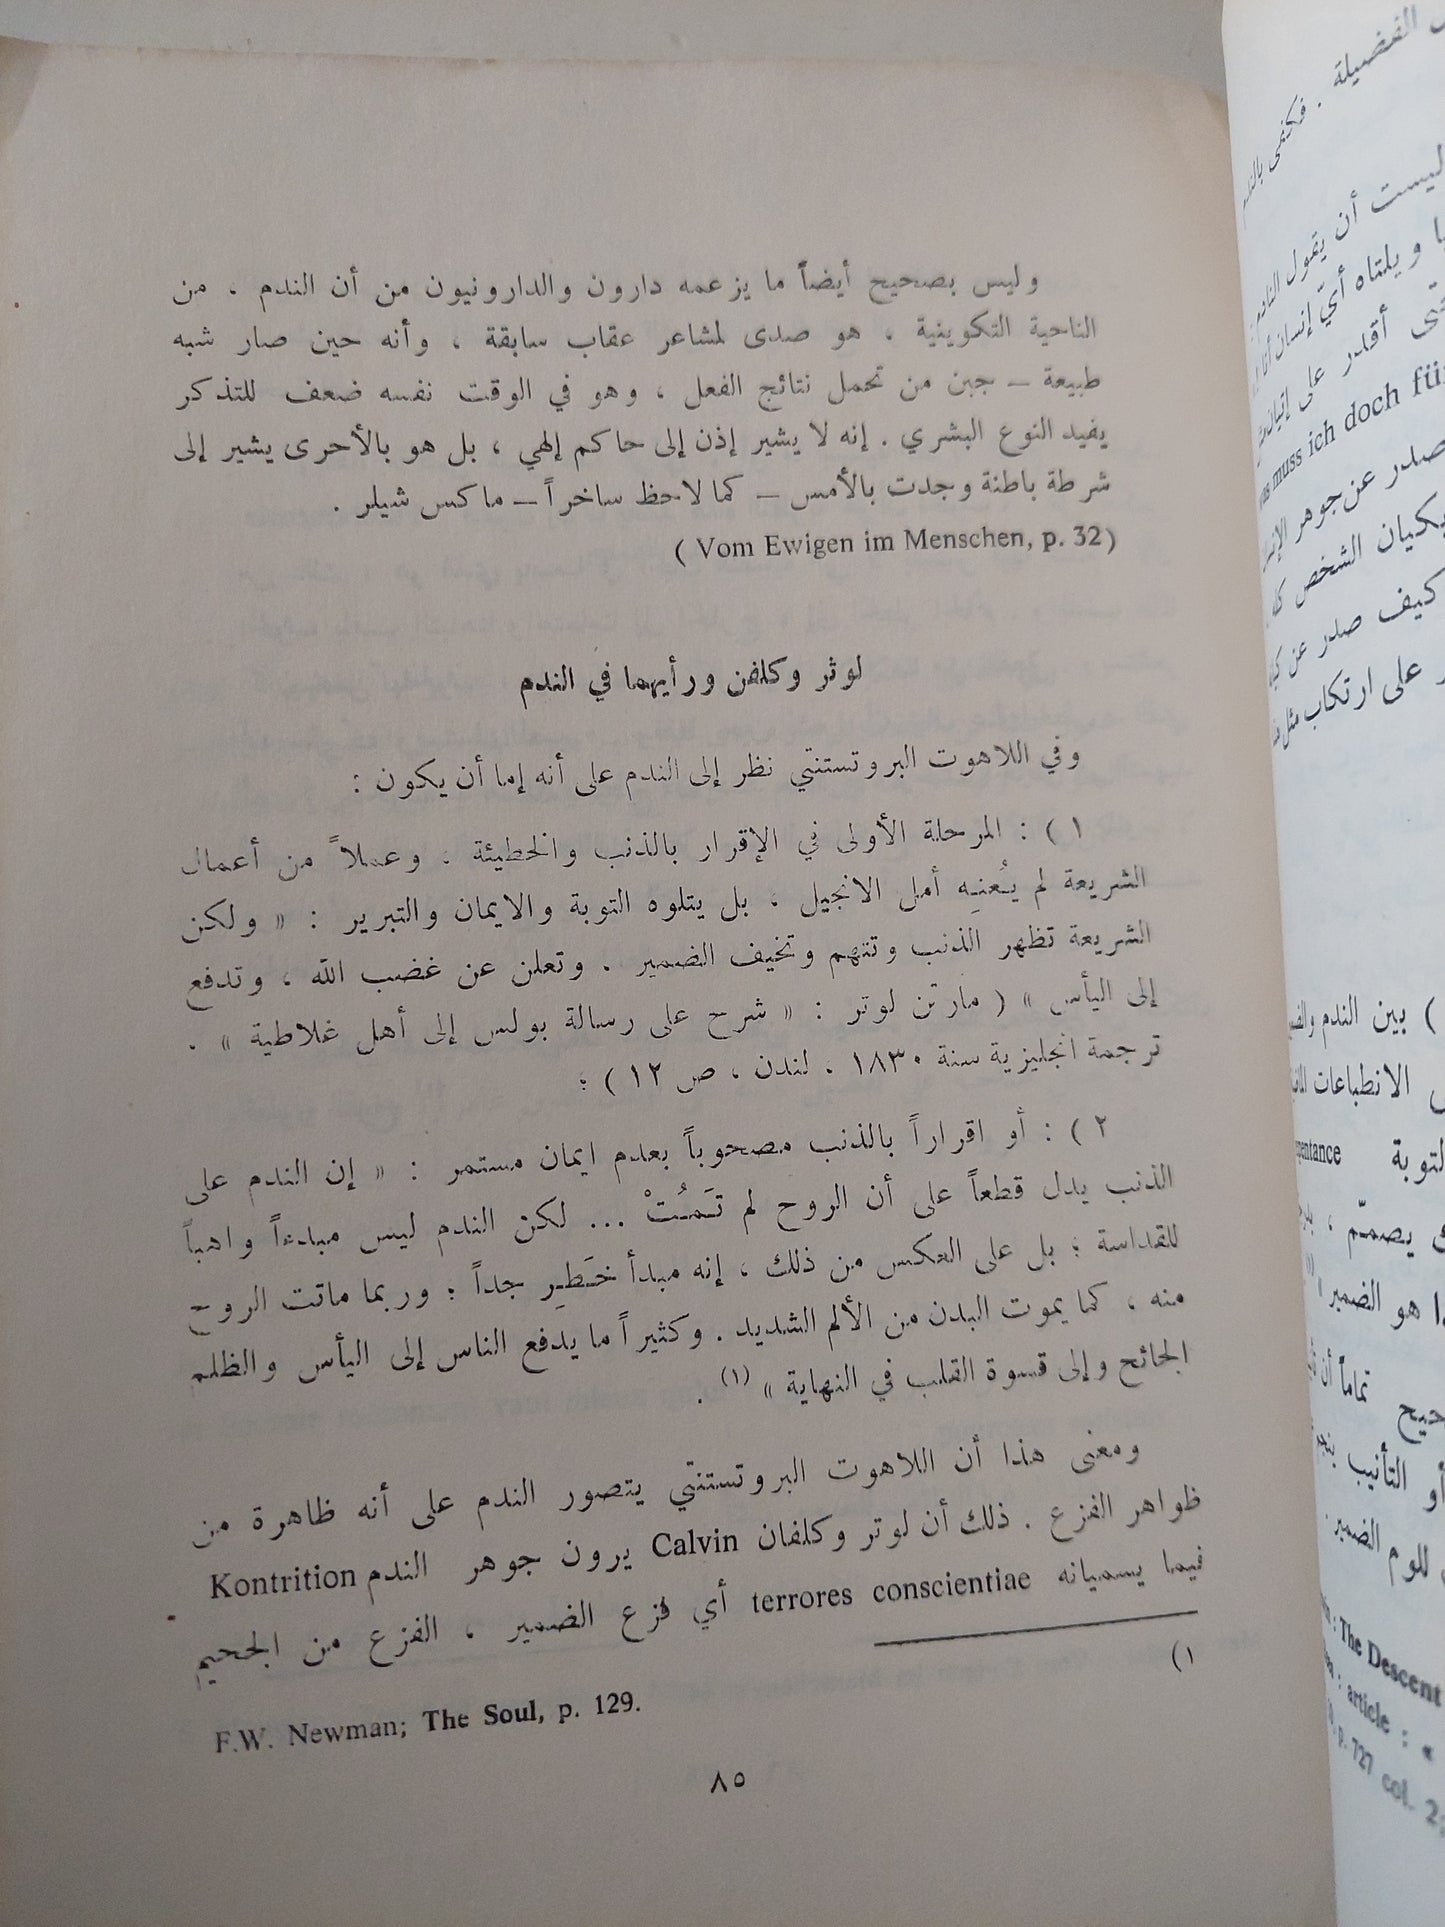 وليس بصحيح أيضاً ما يزعمه دارون والدارونيون من أن الندم ، من
الناحية التكوينية ، هو صدى لمشاعر عقاب سابقة ، وأنه حين صار شبه
طبيعة – جبن من تحمل نتائج الفعل ، وهو في الوقت نفسه ضعف للتذكر
يفيد النوع البشري . إنه لا يشير إذن إلى حاكم إلهي ، بل هو بالأحرى يشير إلى
شرطة باطنة وجدت بالأمس – كما لاحظ ساخراً – ماكس شيلر .
( Vom Ewigen im Menschen, p. 32)
لوثر وكلفن ورأيهما في الندم
وفي اللاهوت البروتستنتي نظر إلى الندم على أنه إما أن يكون :
١ ) : المرحلة الأولى في الإقرار بالذنب والخطيئة ، وعملاً من أعمال
الشريعة لم يُعنِه أمل الانجيل ، بل يتلوه التوبة والايمان والتبرير : « ولكن
الشريعة تظهر الذنب وتتهم وتخيف الضمير . وتعلن عن غضب الله ، وتدفع
إلى اليأس » ( مارتن لوتر : « شرح على رسالة بولس إلى أهل غلاطية » .
ترجمة انجليزية سنة ١٨٣٠ ، لندن ، ص ١٢ ) ؛
٢ ) : أو اقراراً بالذنب مصحوباً بعدم ايمان مستمر : « إن الندم على
الذنب يدل قطعاً على أن الروح لم تَمُتْ ... لكن الندم ليس مبدءاً واهباً
للقداسة ؛ بل على العكس من ذلك ، إنه مبدأ خَطِر جداً ؛ وربما ماتت الروح
منه ، كما يموت البدن من الألم الشديد . وكثيراً ما يدفع الناس إلى اليأس والظلم
الجائح وإلى قسوة القلب في النهاية » (١) .
ومعنى هذا أن اللاهوت البروتستنتي يتصور الندم على أنه ظاهرة من
ظواهر الفزع . ذلك أن لوتر وكلفان Calvin يرون جوهر الندم Kontrition
فيما يسميانه terrores conscientiae أي فزع الضمير ، الفزع من الجحيم
١)
F.W. Newman; The Soul, p. 129.
٨٥
الفضيلة . فكفى
ليست أن يقول النادم
ويلتاه أيّ إنسان أنا
أقدر على إتيان
muss ich doch für
صدر عن جوهر
بكيان الشخص كله
كيف صدر عن
على ارتكاب مثل
) بين الندم
الانطباعات
التوبة
يصمّم ،
هو الضمير » (١)
تماماً أن
أو التأنيب
للوم الضمير .
: The Descent
: article : «
p. 727 col. 2;